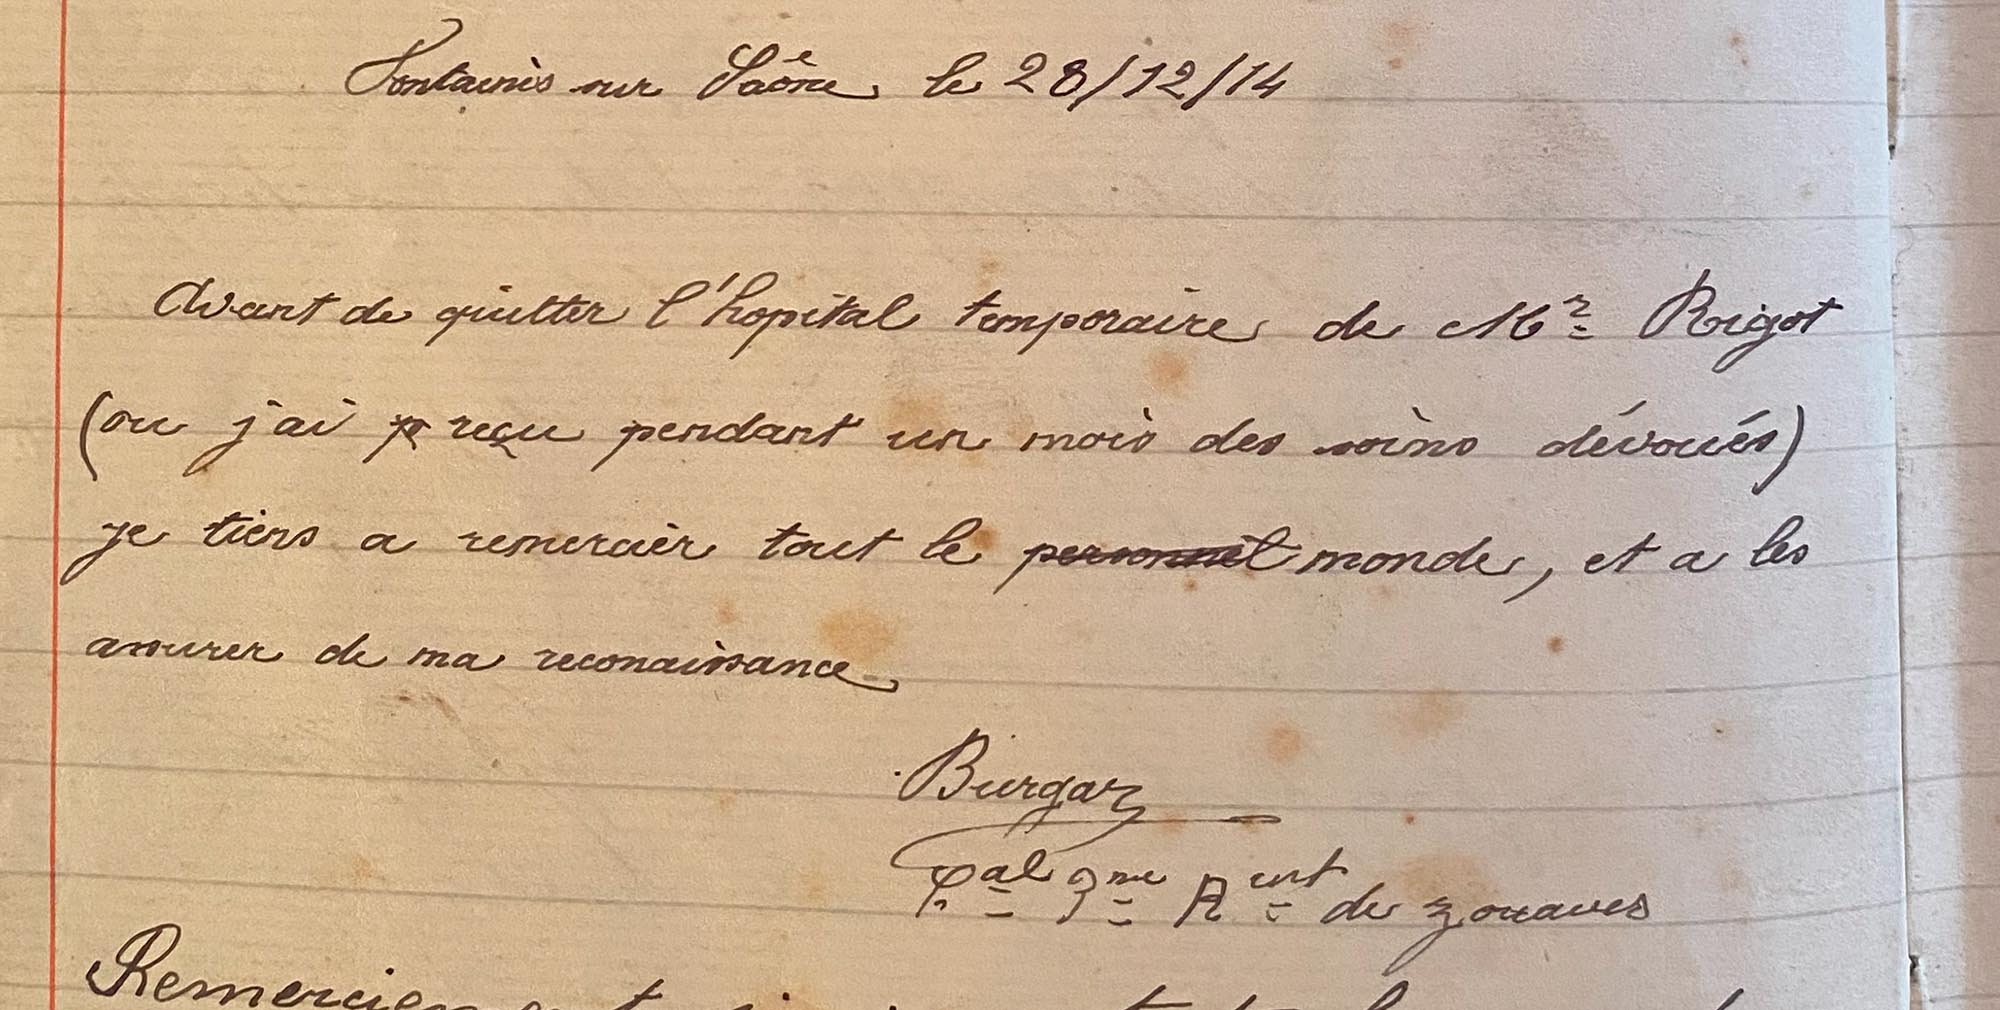 Fontaines sur Saône le 28/12/14
Avant de quitter l'hopital temporaire de Mr Rigot
(ou j'ai reçu pendant un mois des soins dévoués)
je tiens a remercier tout le personnel monde, et a les
assurer de ma reconaissance
Burgaz
Cal 3me Rent de zouaves